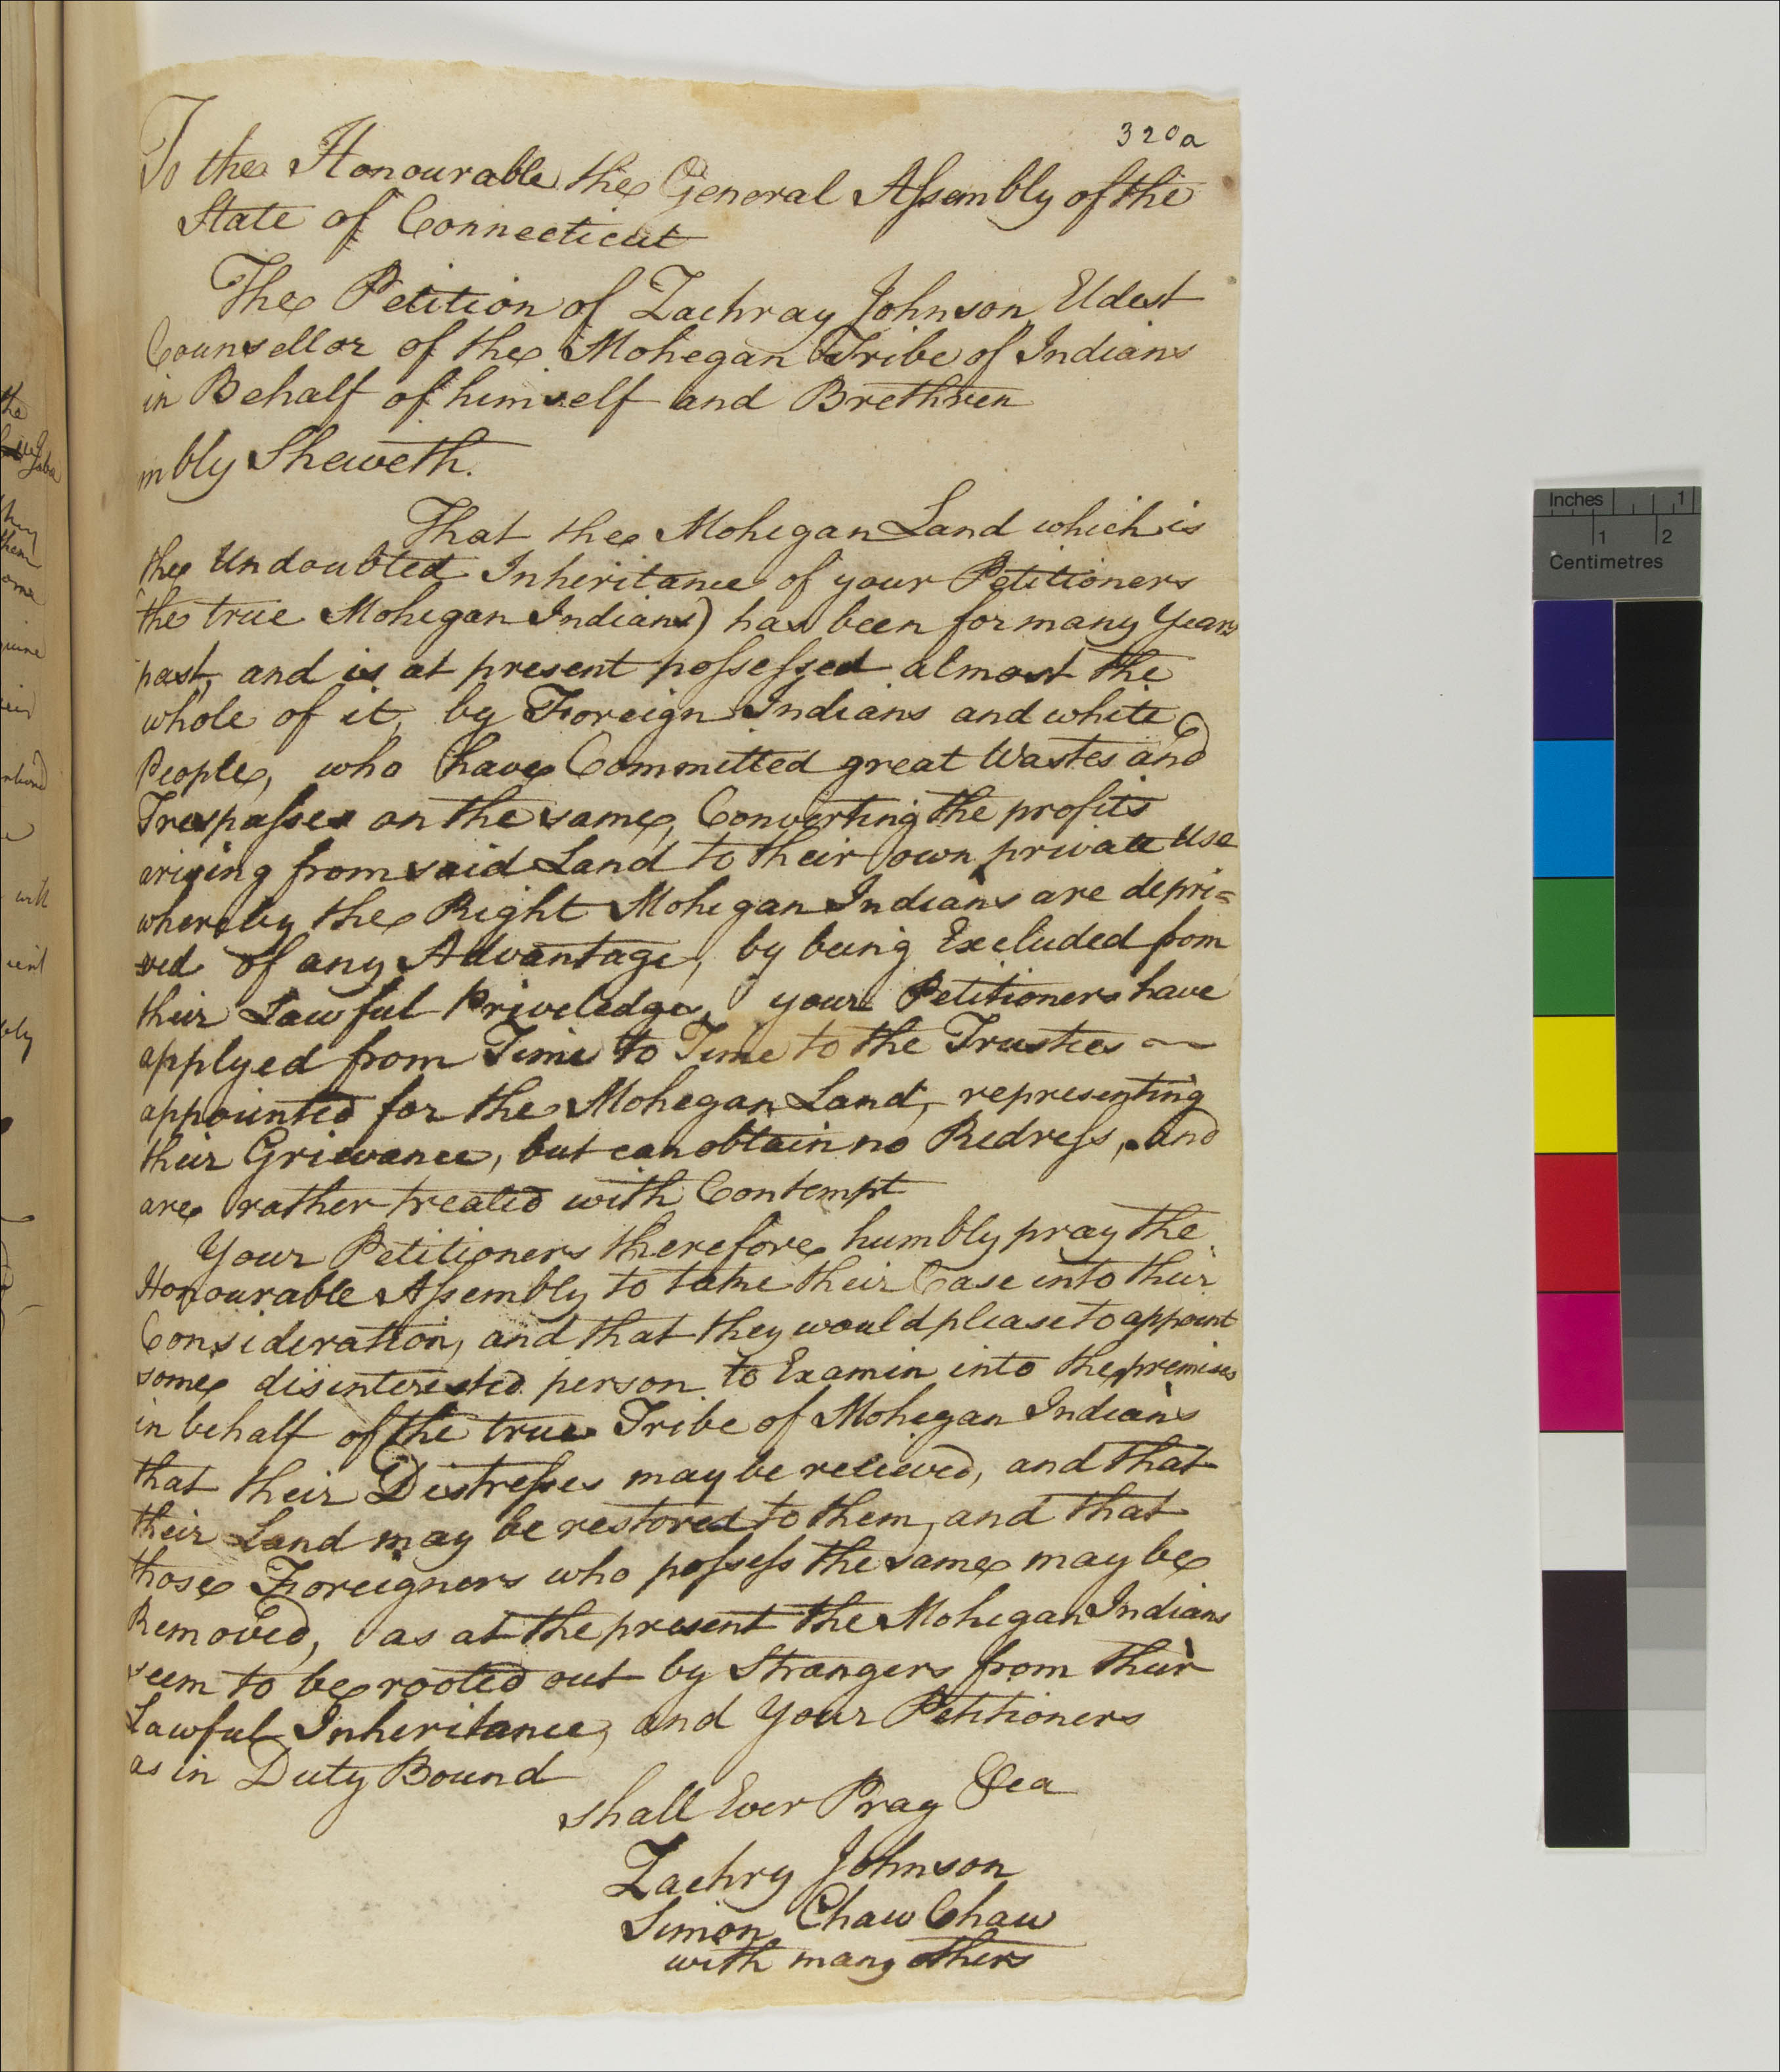 320a
To the Honourable the General Assembly of the
State of Connecticut
The Petition of Zachray Johnson Eldest
Counsellor of the Mohegan Tribe of Indians
in Behalf of himself and Brethren
mbly Sheweth.
That the Mohegan Land which is
the Undoubted Inheritance of your Petitioners
(the true Mohegan Indians) has been for many Years
past, and is at present possessed almost the
whole of it, by Foreign Indians and white
People, who have Committed great Wastes and
Trespasses on the same, Converting the profits
arising from said Land to their own private Use
whereby the Right Mohegan Indians are depri=
ved of any Advantage, by being Excluded from
their Lawful Priveledges, your Petitioners have
applyed from Time to Time to the Trustees ~
appointed for the Mohegan Land, representing
their Grievance, but can obtain no Redress, and
are rather treated with Contempt
Your Petitioners therefore humbly pray the
Honourable Assembly to take their Case into their
Consideration, and that they would please to appoint
some disinterested person to Examin into the premises
in behalf of the true Tribe of Mohegan Indians
that their Distresses may be relieved, and that
their Land may be restored to them, and that
those Foreigners who possess the same may be
Removed, as at the present the Mohegan Indians
seem to be rooted out by Strangers from their
Lawful Inheritance, and Your Petitioners
as in Duty Bound
shall Ever Pray &ca
Zachry Johnson
Simon Chaw Chaw
with many others
Inches 1
1 2
Centimetres